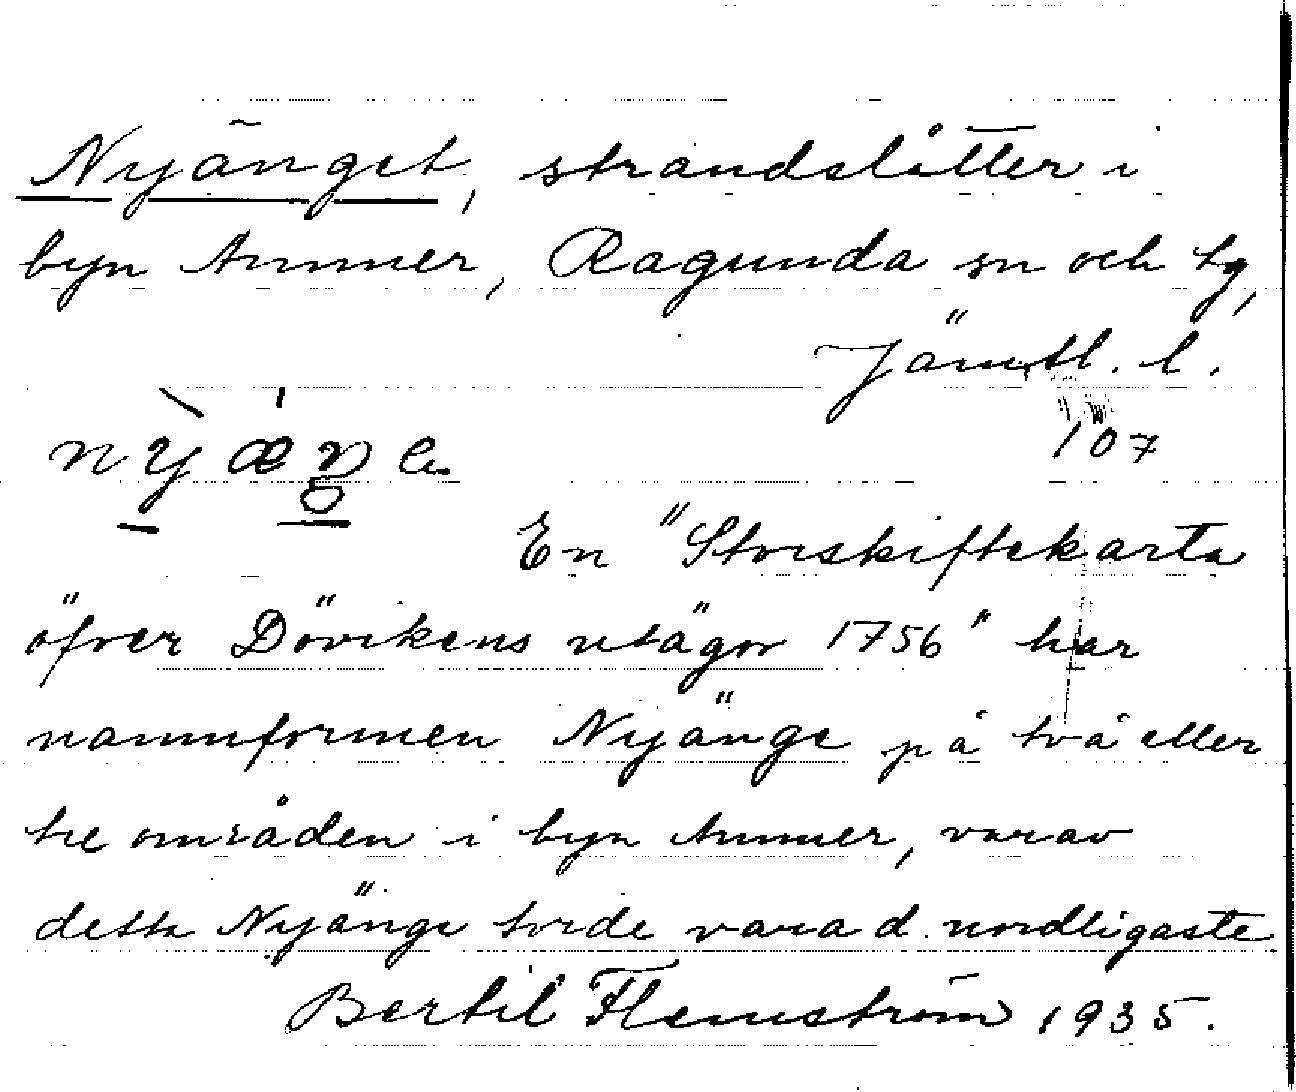 Nyänget, strandslåtter i
byn Ammer, Ragunda sn och tg,
Jämtl. l.
107
En "Storskiftekarta
öfver Dövikens utägor 1756" har
namnformen Nyänge på två eller
tre områden i byn Ammer, varav
detta Nyänge torde vara d. nordligaste
Bertil Flemström 1935.